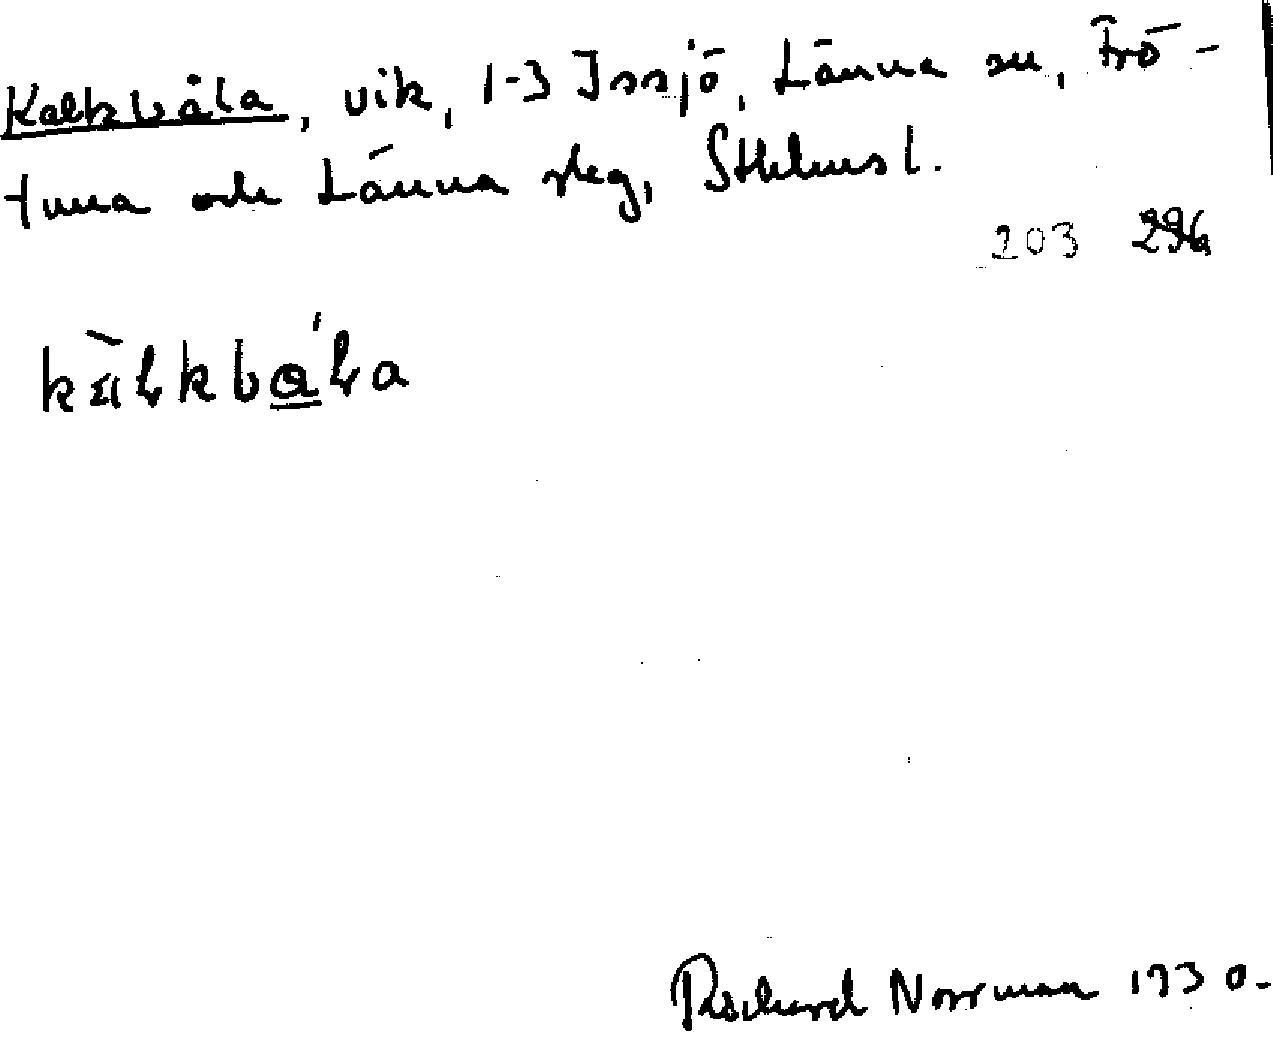 Kalkbåla, vik, 1-3 Issjö, Länna sn, Frö-
tuna och Länna skg, Sthlms l.
203
Richard Norrman 1930.